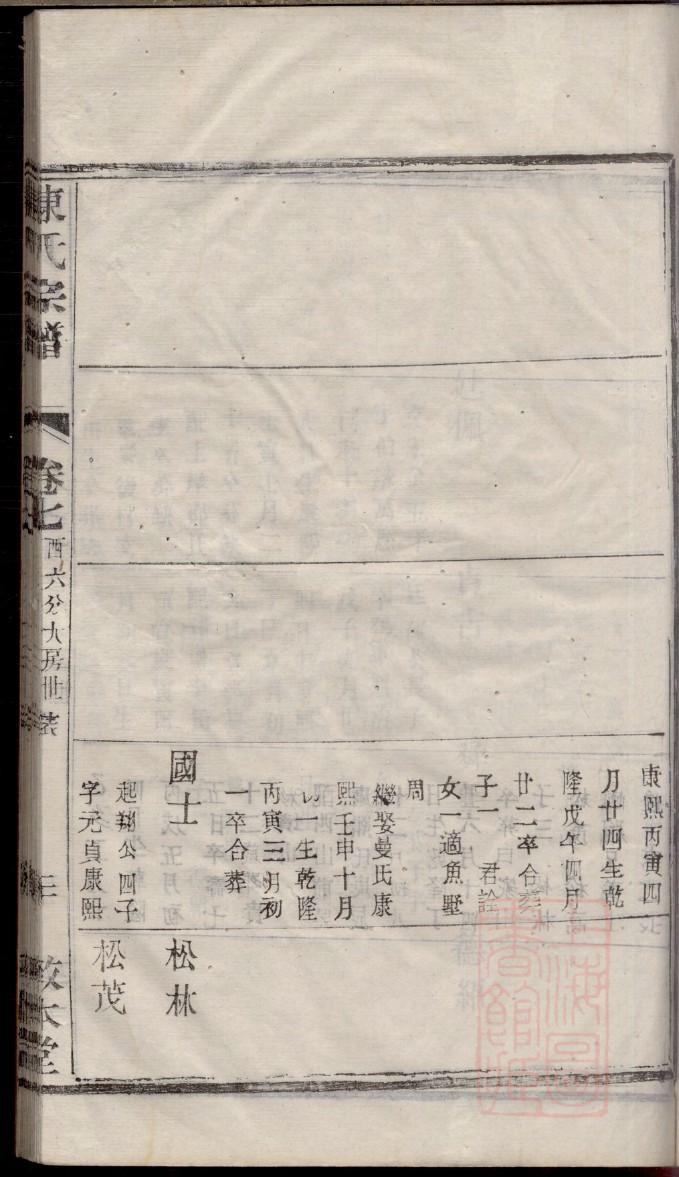 康熙丙寅四
月廿四生乾
隆戊午四月
廿二卒合葬
子一 君詮
女一適魚墅
周
繼娶曼氏康
熙壬申十月
初一生乾隆
丙寅三月初
一卒合葬
國士
起翔公四子
字元貞康熙
松林
松茂
陳氏宗譜
卷七
酉六分大房世表
三
敦本堂